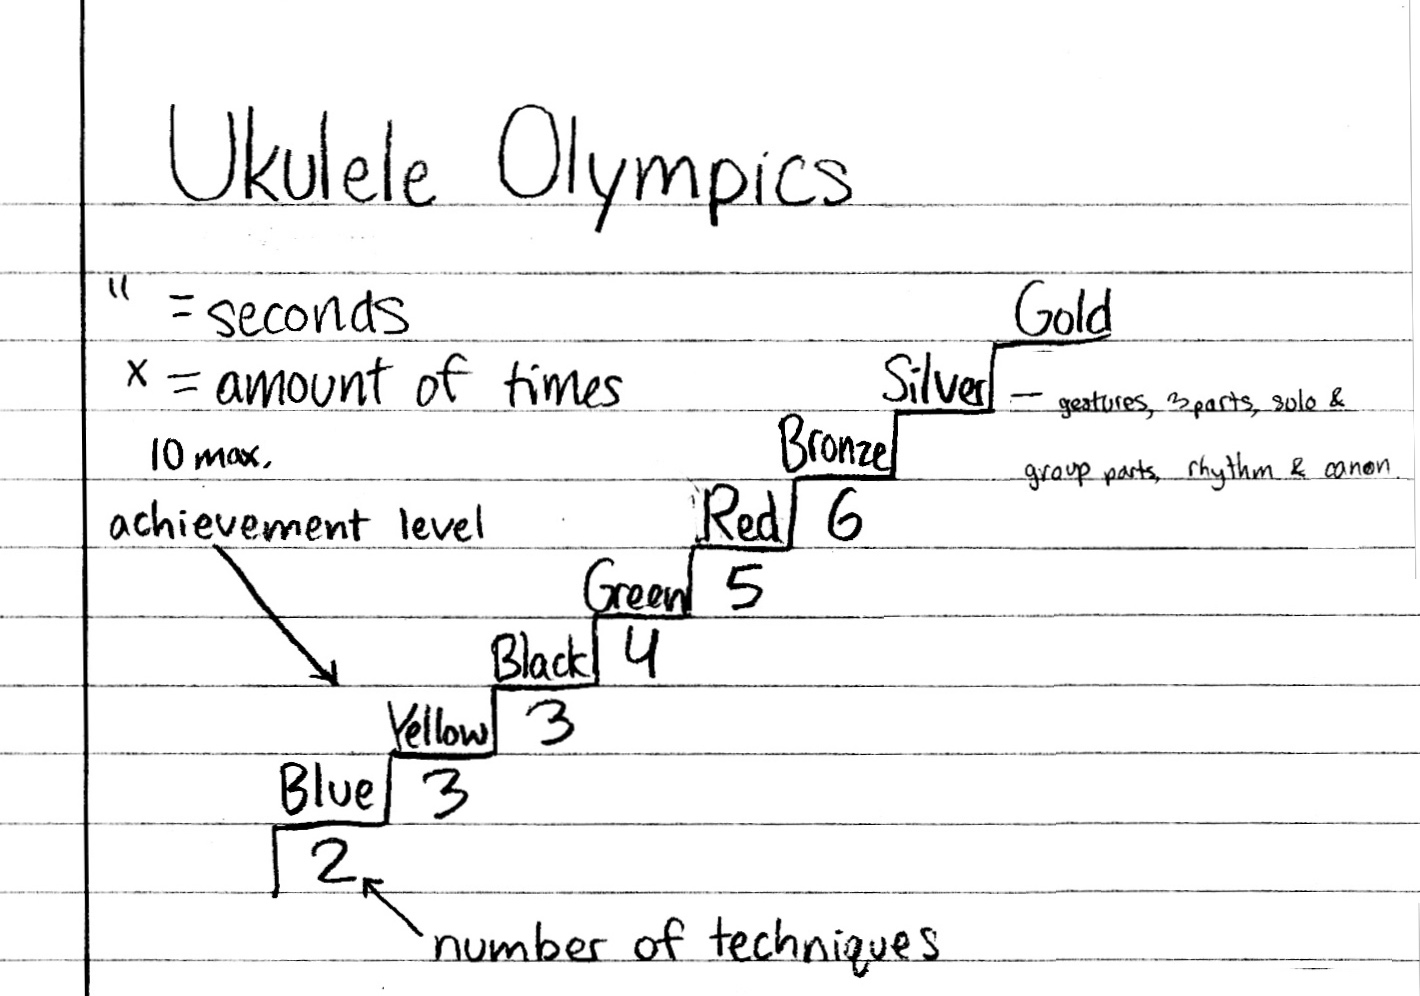 Ukulele Olympics
" = seconds
Gold
x = amount of times
Silver
— gestures, 3 parts, solo &
10 max.
Bronze
group parts, rhythm & canon
achievement level
Red
6
Green
5
Black
4
Yellow
3
Blue
3
2
number of techniques